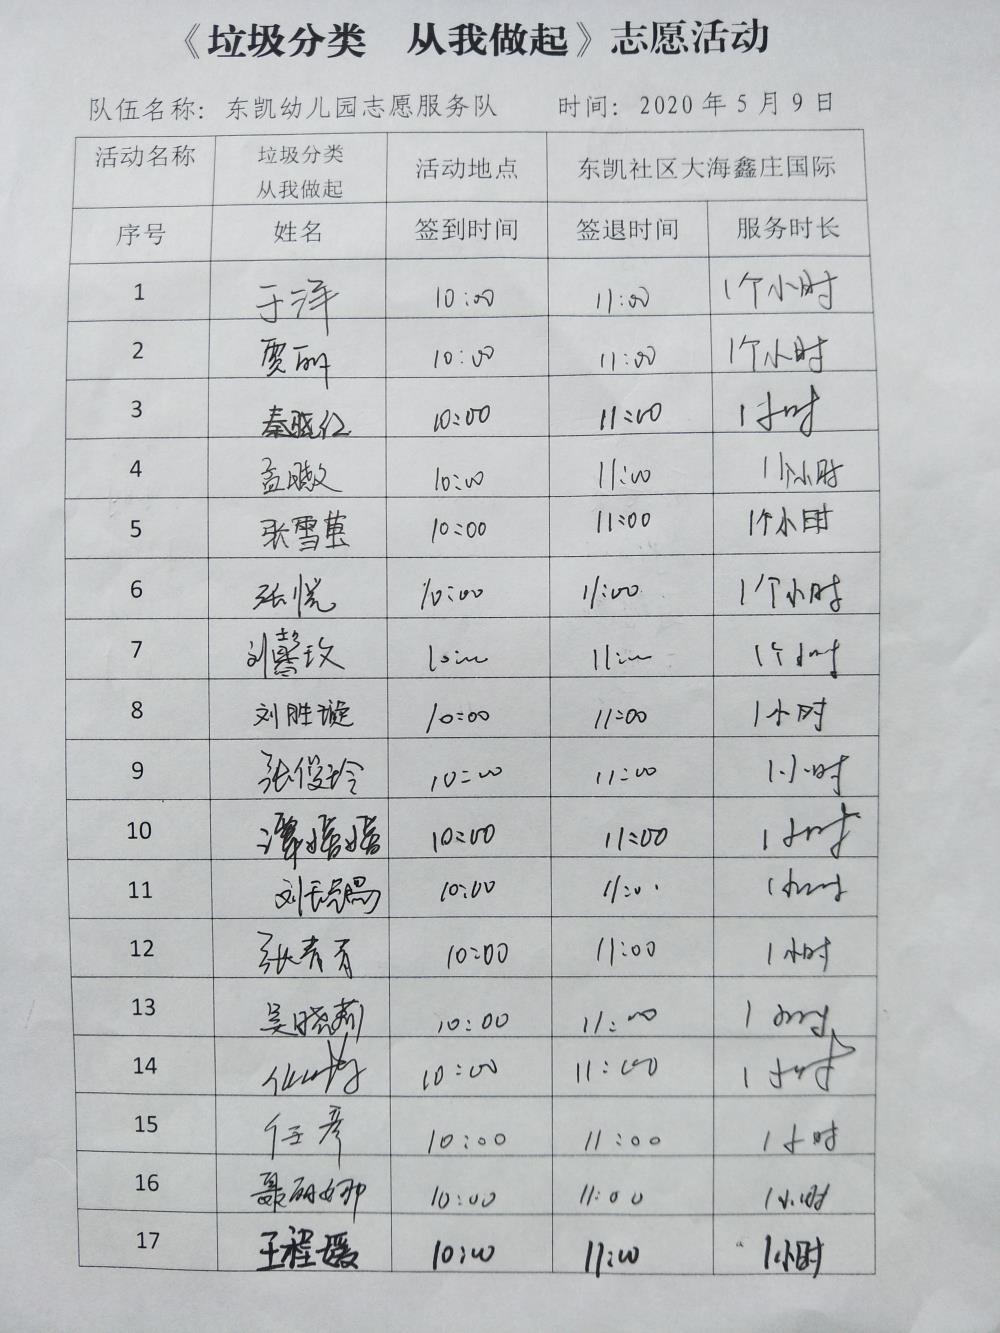 《垃圾分类　从我做起》志愿活动
队伍名称：东凯幼儿园志愿服务队　　时间：2020年5月9日
活动名称 垃圾分类 从我做起 活动地点 东凯社区大海鑫庄国际
序号 姓名 签到时间 签退时间 服务时长
1 于洋 10:00 11:00 1个小时
2 贾丽 10:00 11:00 1个小时
3 秦晓红 10:00 11:00 1小时
4 孟晓文 10:00 11:00 1个小时
5 张雪莹 10:00 11:00 1个小时
6 张悦 10:00 11:00 1个小时
7 刘馨玫 10:00 11:00 1个小时
8 刘胜璇 10:00 11:00 1小时
9 张俊玲 10:00 11:00 1小时
10 谭婧婧 10:00 11:00 1小时
11 10:00 11:00 1小时
12 张青青 10:00 11:00 1小时
13 吴晓莉 10:00 11:00 1小时
14 10:00 11:00 1小时
15 任彦 10:00 11:00 1小时
16 聂丽娜 10:00 11:00 1小时
17 王程媛 10:00 11:00 1小时